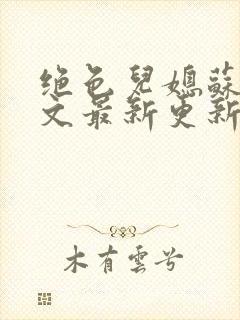 绝色兒媳蘇
文最新更新
木有雲兮